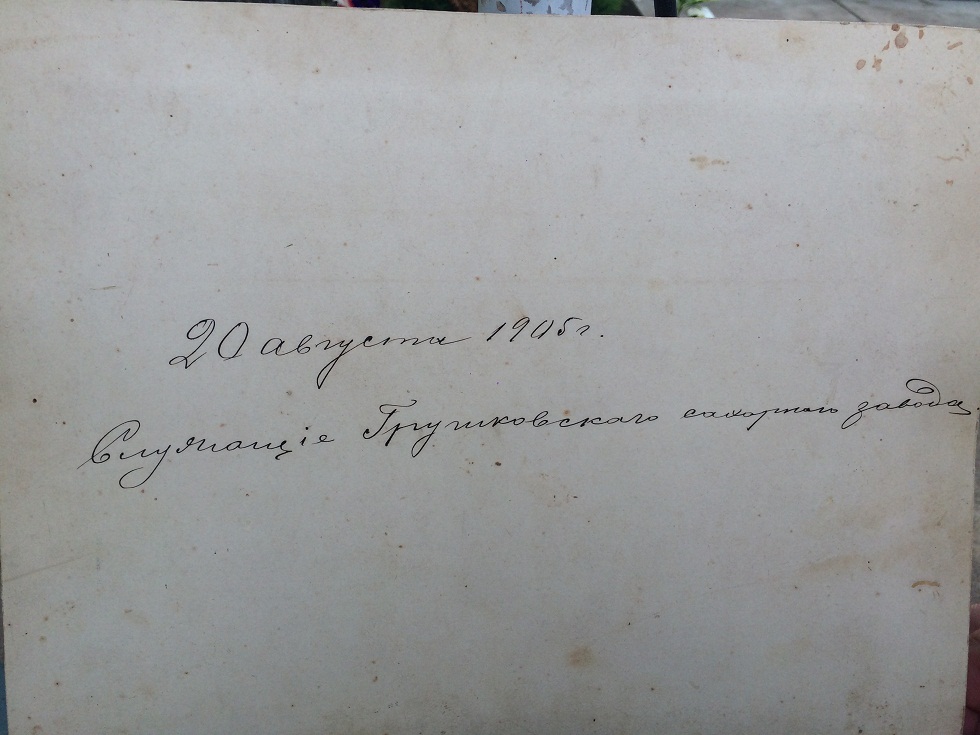 20 августа 1905 г.
Служащіе Грушковскаго сахарнаго завода